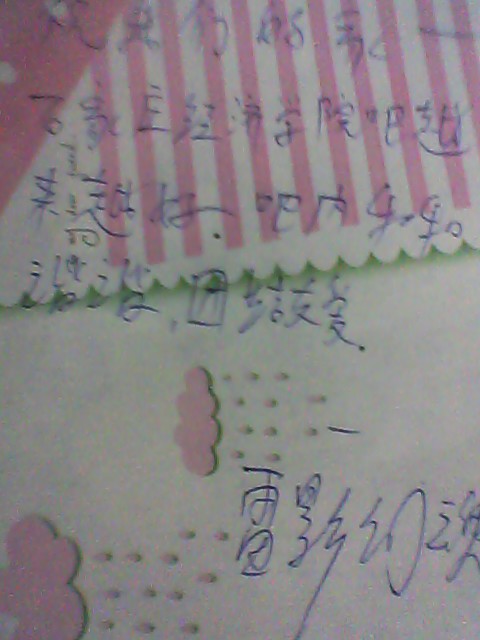 祝我们的家一
百家区经济学院吧越
来越好. 吧内和和
谐谐, 团结友爱.
—
雷影幻